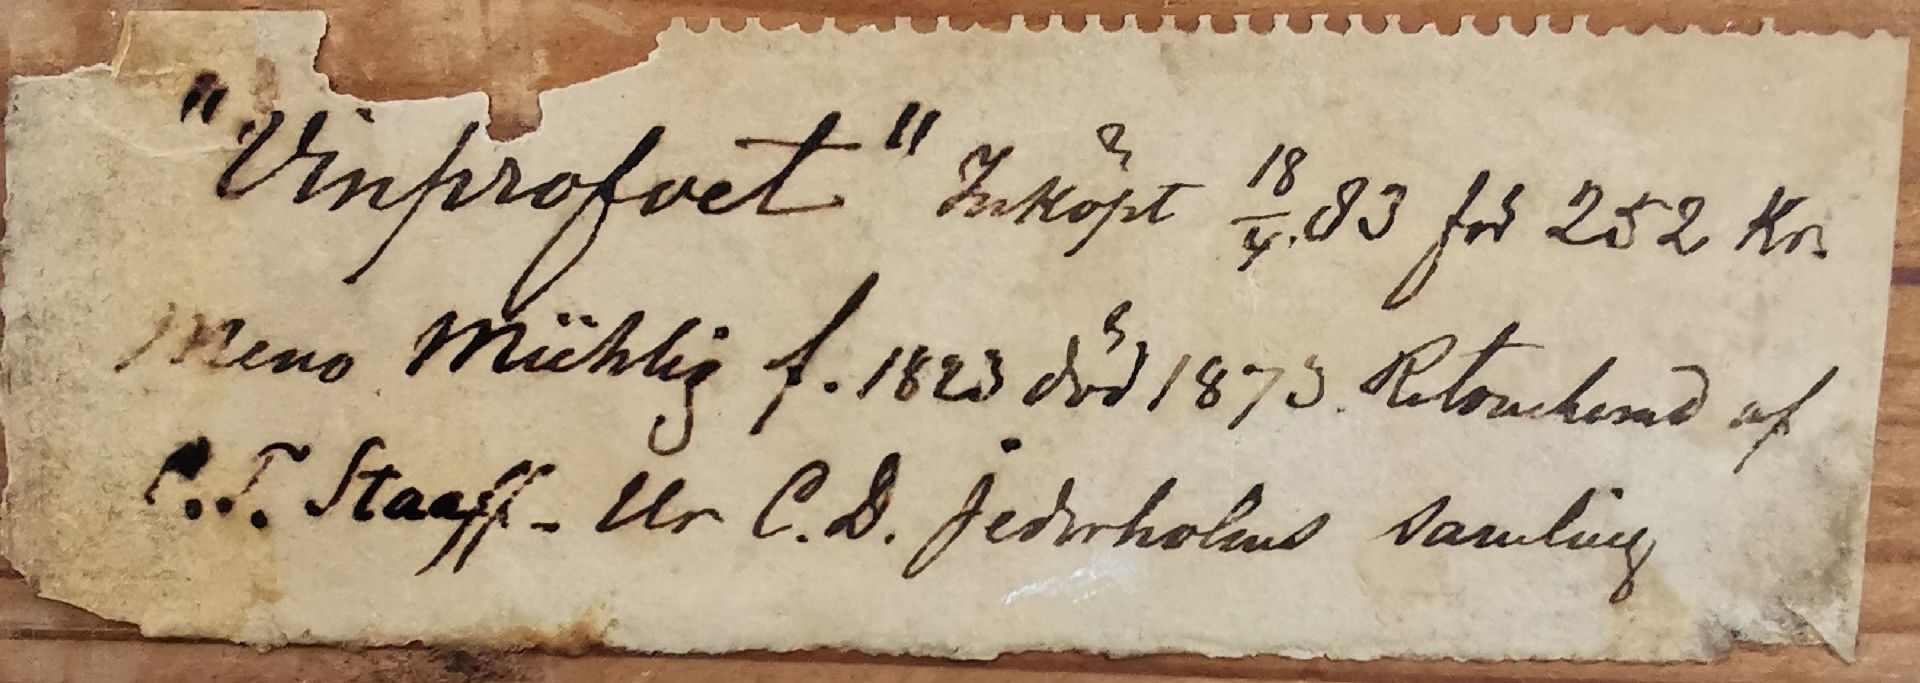 "Vinprofvet" Inköpt 18/4.83 för 252 Kr.
Meno Mühlig f. 1823 död 1873. Retoucherad af
C. T. Staaff - Ur C. D. jederholms samling